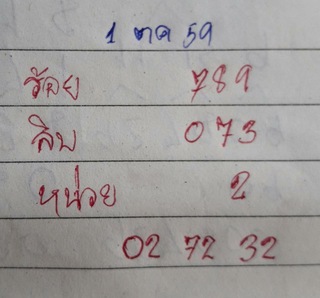 1 ตค 59
ร้อย 789
สิบ 073
หน่วย 2
02 72 32